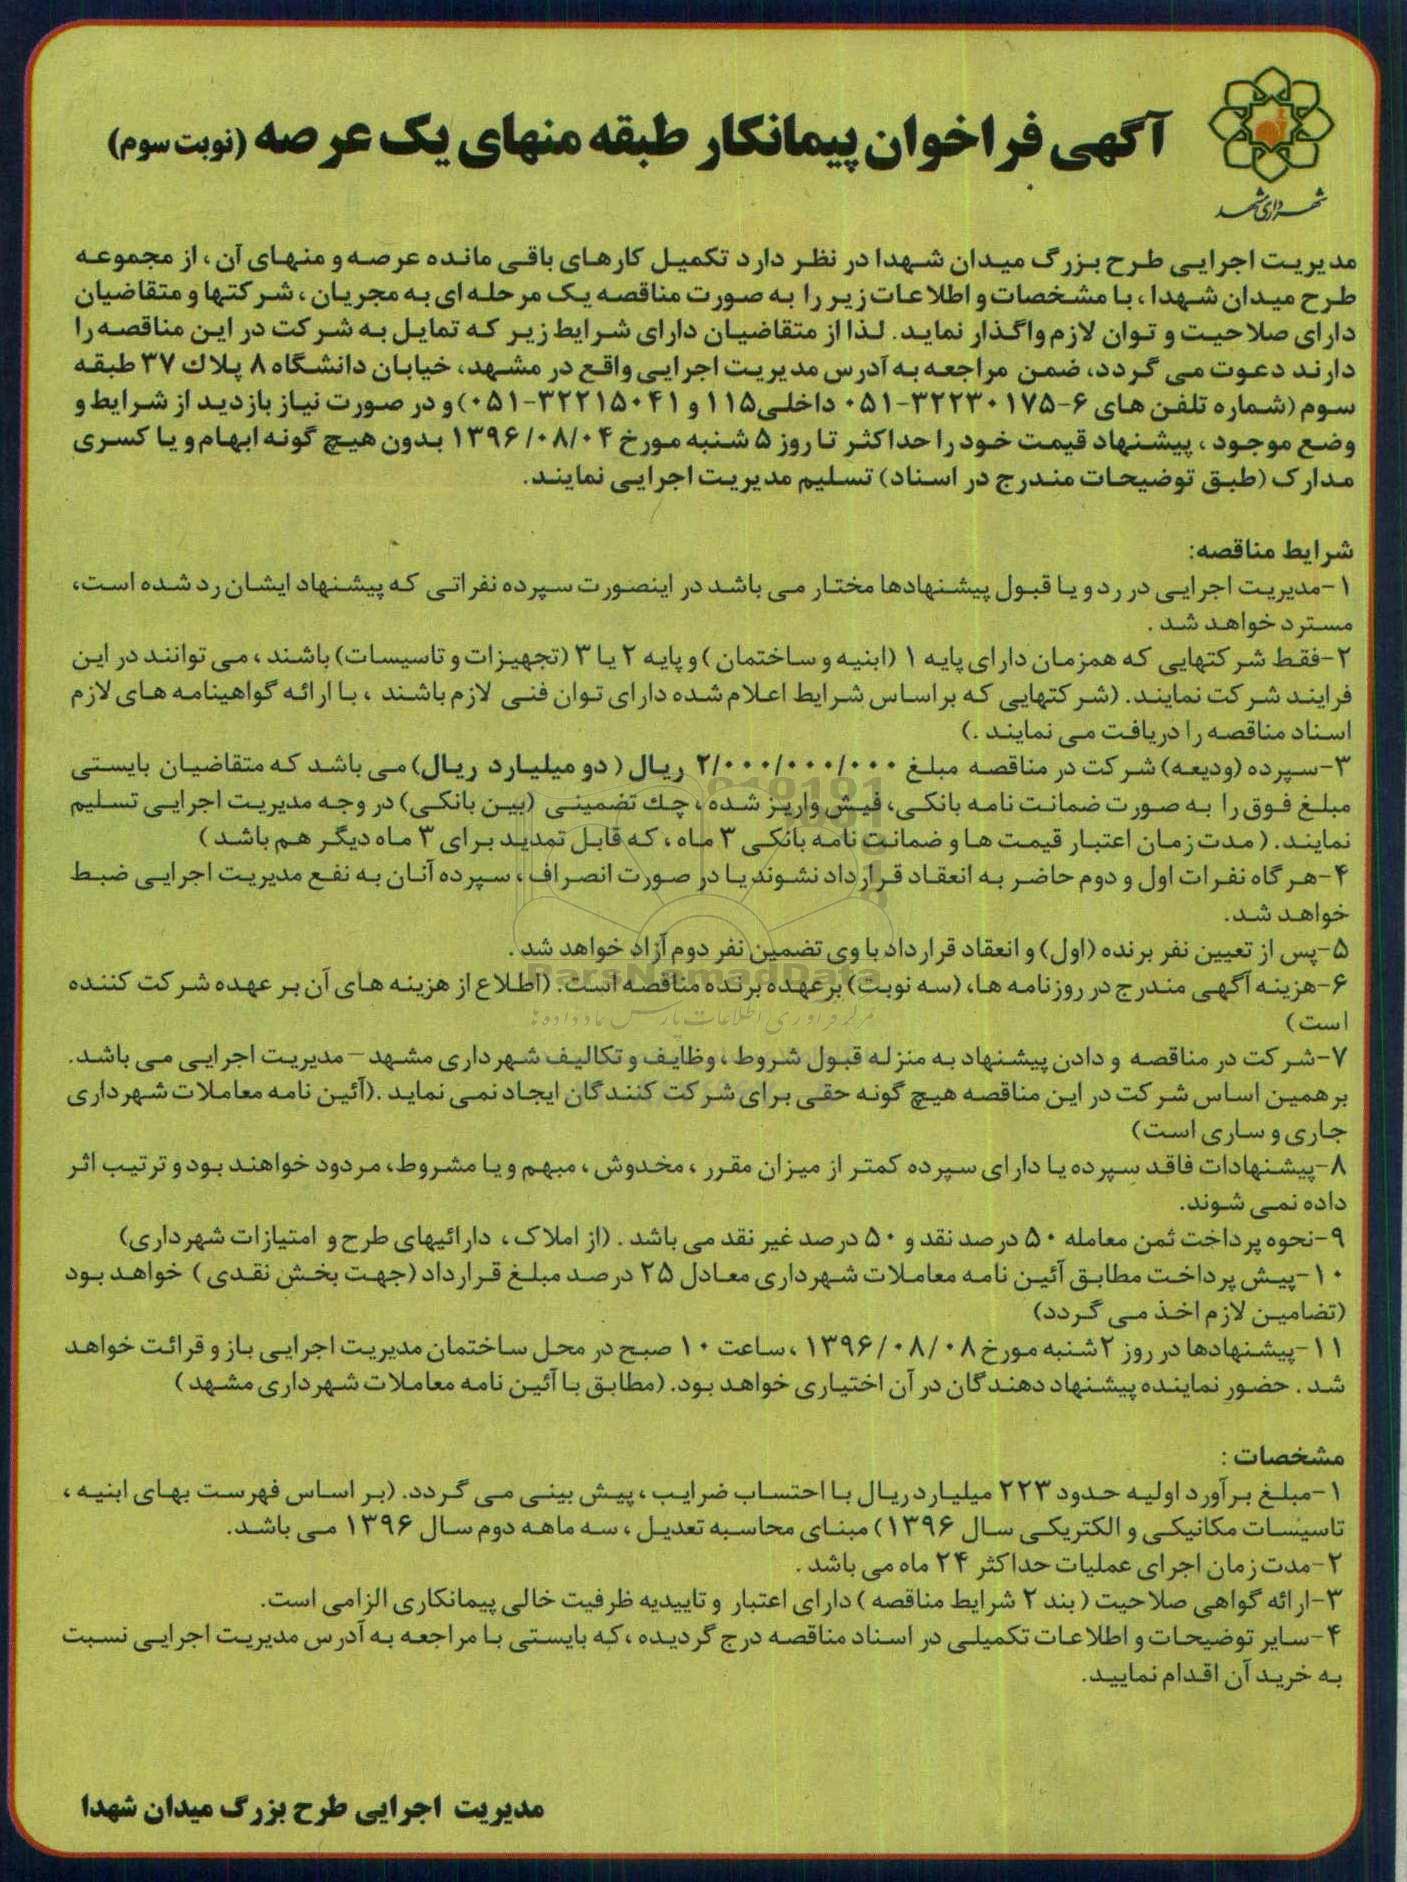 شهرداری مشهد
آگهی فراخوان پیمانکار طبقه منهای یک عرصه (نوبت سوم)
مدیریت اجرایی طرح بزرگ میدان شهدا در نظر دارد تکمیل کارهای باقی مانده عرصه و منهای آن، از مجموعه
طرح میدان شهدا، با مشخصات و اطلاعات زیر را به صورت مناقصه یک مرحله ای به مجریان، شرکتها و متقاضیان
دارای صلاحیت و توان لازم واگذار نماید. لذا از متقاضیان دارای شرایط زیر که تمایل به شرکت در این مناقصه را
دارند دعوت می گردد، ضمن مراجعه به آدرس مدیریت اجرایی واقع در مشهد، خیابان دانشگاه ۸ پلاك ۳۷ طبقه
سوم (شماره تلفن های ۶-۳۲۲۳۰۱۷۵-۰۵۱ داخلی۱۱۵ و ۳۲۲۱۵۰۴۱-۰۵۱) و در صورت نیاز بازدید از شرایط و
وضع موجود، پیشنهاد قیمت خود را حداکثر تا روز ۵ شنبه مورخ ۱۳۹۶/۰۸/۰۴ بدون هیچ گونه ابهام و یا کسری
مدارک (طبق توضیحات مندرج در اسناد) تسلیم مدیریت اجرایی نمایند.
شرایط مناقصه:
۱-مدیریت اجرایی در رد و یا قبول پیشنهادها مختار می باشد در اینصورت سپرده نفراتی که پیشنهاد ایشان رد شده است،
مسترد خواهد شد .
۲-فقط شرکتهایی که همزمان دارای پایه ۱ (ابنیه و ساختمان ) و پایه ۲ یا ۳ (تجهیزات و تاسیسات) باشند، می توانند در این
فرایند شرکت نمایند. (شرکتهایی که براساس شرایط اعلام شده دارای توان فنی لازم باشند ، با ارائه گواهینامه های لازم
اسناد مناقصه را دریافت می نمایند .)
۳-سپرده (ودیعه) شرکت در مناقصه مبلغ ۲/۰۰۰/۰۰۰/۰۰۰ ریال ( دو میلیارد ریال) می باشد که متقاضیان بایستی
مبلغ فوق را به صورت ضمانت نامه بانکی، فیش واریز شده، چك تضمینی (بین بانکی) در وجه مدیریت اجرایی تسلیم
نمایند. ( مدت زمان اعتبار قیمت ها و ضمانت نامه بانکی ۳ ماه ، که قابل تمدید برای ۳ ماه دیگر هم باشد )
۴-هر گاه نفرات اول و دوم حاضر به انعقاد قرارداد نشوند یا در صورت انصراف، سپرده آنان به نفع مدیریت اجرایی ضبط
خواهد شد.
۵-پس از تعیین نفر برنده (اول) و انعقاد قرارداد با وی تضمین نفر دوم آزاد خواهد شد .
ParsNamadData
۶-هزینه آگهی مندرج در روزنامه ها، (سه نوبت) برعهده برنده مناقصه است. (اطلاع از هزینه های آن بر عهده شرکت کننده
است)
۷-شرکت در مناقصه و دادن پیشنهاد به منزله قبول شروط ، وظایف و تکالیف شهرداری مشهد – مدیریت اجرایی می باشد.
بر همین اساس شرکت در این مناقصه هیچ گونه حقی برای شرکت کنندگان ایجاد نمی نماید .(آئین نامه معاملات شهرداری
جاری و ساری است)
۸-پیشنهادات فاقد سپرده یا دارای سپرده کمتر از میزان مقرر ، مخدوش ، مبهم و یا مشروط، مردود خواهند بود و ترتیب اثر
داده نمی شوند.
۹-نحوه پرداخت ثمن معامله ۵۰ درصد نقد و ۵۰ درصد غیر نقد می باشد . (از املاک ، دارائیهای طرح و امتیازات شهرداری)
۱۰-پیش پرداخت مطابق آئین نامه معاملات شهرداری معادل ۲۵ درصد مبلغ قرارداد (جهت بخش نقدی ) خواهد بود
(تضامین لازم اخذ می گردد)
۱۱-پیشنهادها در روز ۲شنبه مورخ ۱۳۹۶/۰۸/۰۸ ، ساعت ۱۰ صبح در محل ساختمان مدیریت اجرایی باز و قرائت خواهد
شد . حضور نماینده پیشنهاد دهندگان در آن اختیاری خواهد بود. (مطابق با آئین نامه معاملات شهرداری مشهد )
مشخصات :
۱-مبلغ برآورد اولیه حدود ۲۲۳ میلیارد ریال با احتساب ضرایب ، پیش بینی می گردد. (بر اساس فهرست بهای ابنیه ،
تاسیسات مکانیکی و الکتریکی سال ۱۳۹۶) مبنای محاسبه تعدیل ، سه ماهه دوم سال ۱۳۹۶ می باشد.
۲-مدت زمان اجرای عملیات حداکثر ۲۴ ماه می باشد .
۳-ارائه گواهی صلاحیت ( بند ۲ شرایط مناقصه ) دارای اعتبار و تاییدیه ظرفیت خالی پیمانکاری الزامی است.
۴-سایر توضیحات و اطلاعات تکمیلی در اسناد مناقصه درج گردیده ، که بایستی با مراجعه به آدرس مدیریت اجرایی نسبت
به خرید آن اقدام نمایید.
مدیریت اجرایی طرح بزرگ میدان شهدا